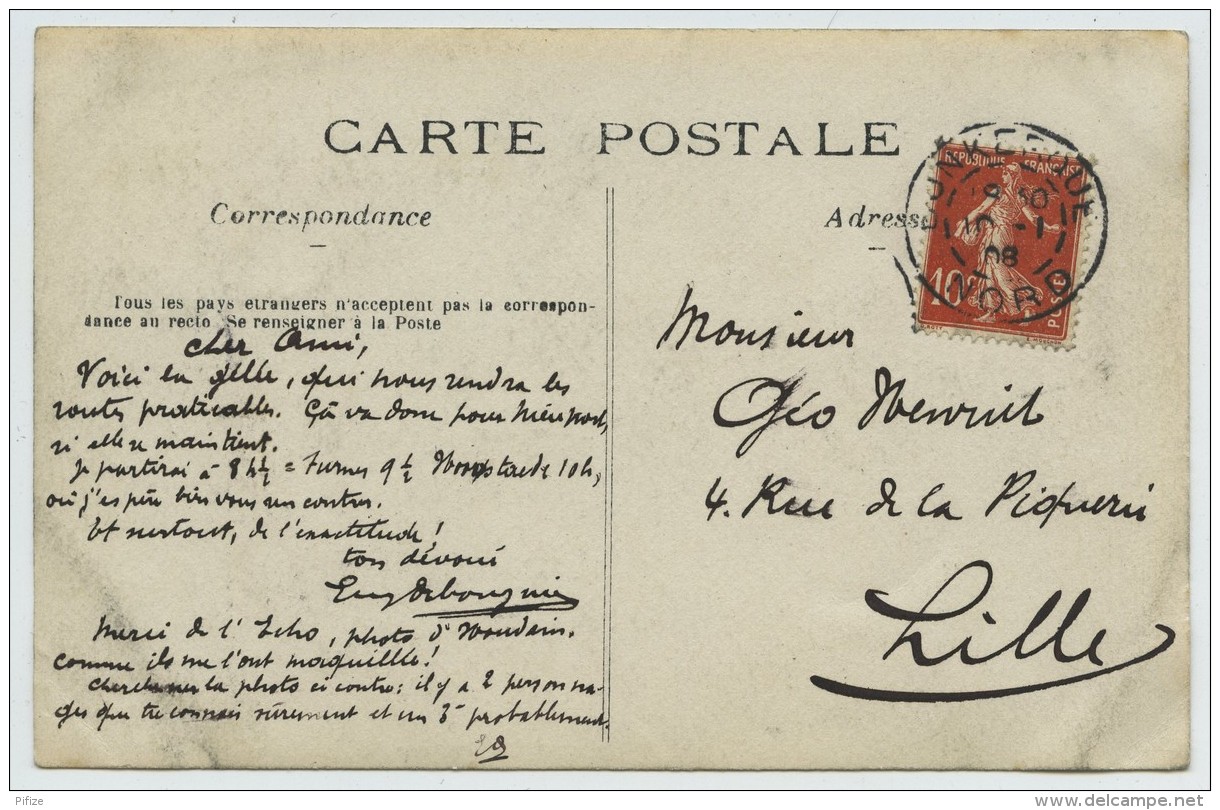 CARTE POSTALE
Correspondance
Adresse
Tous les pays etrangers n'acceptent pas la correspon-
dance au recto Se renseigner à la Poste
cher Ami,
Voici la gelée, qui nous rendra les
routes praticables. Çà va donc pour Nieuport,
si elle se maintient.
je partirai à 8h½ = Furnes 9½ 10h,
où j'espère bien vous rencontrer.
Et surtout, de l'exactitude!
ton dévoué
Merci de l'Echo, photo d'
comme ils me l'ont maquillée!
Cherche sur la photo ci contre: il y a 2 personna-
ges que tu connais sûrement et un 3e probablement.
DUNKERQUE
10 -1
08
NORD
REPUBLIQUE FRANÇAISE
10c
POSTES
Monsieur
Géo
4. Rue de la Piquerie
Lille
Pifize
www.delcampe.net